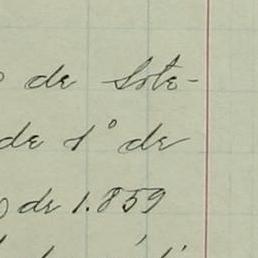 de Sete-
de 1º de
de 1.859